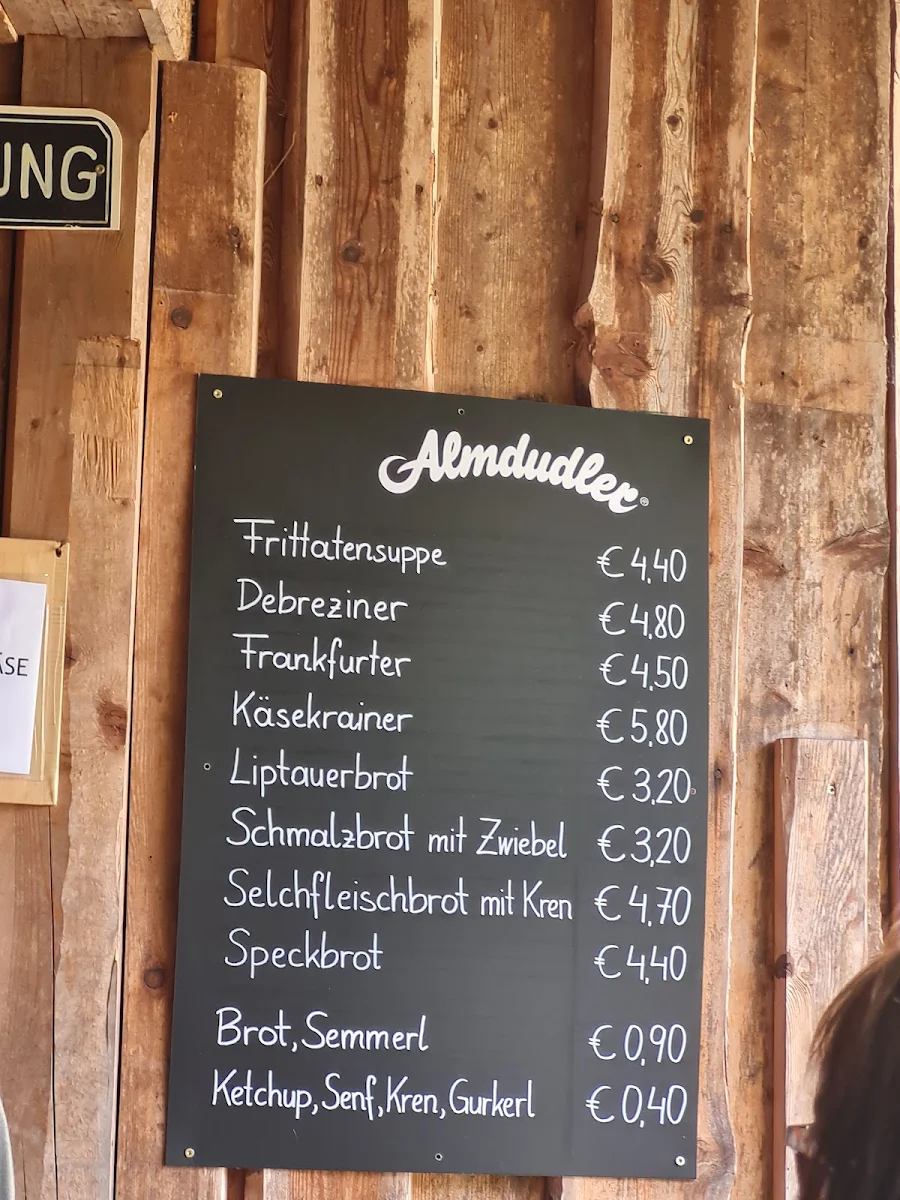 UNG
ÄSE
Almdudler®
Frittatensuppe € 4,40
Debreziner € 4,80
Frankfurter € 4,50
Käsekrainer € 5,80
Liptauerbrot € 3,20
Schmalzbrot mit Zwiebel € 3,20
Selchfleischbrot mit Kren € 4,70
Speckbrot € 4,40
Brot, Semmerl € 0,90
Ketchup, Senf, Kren, Gurkerl € 0,40